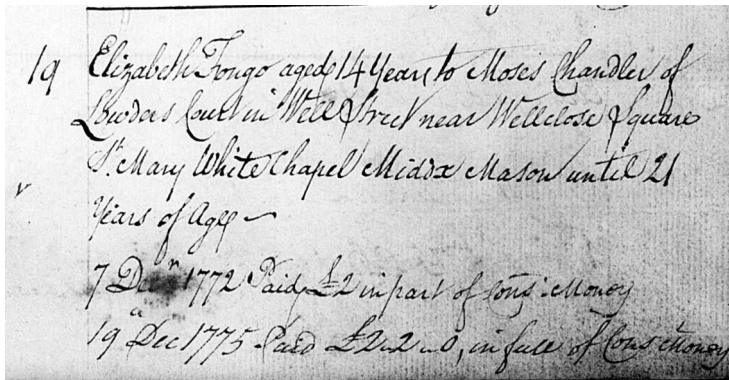 19 Elizabeth Fongo aged 14 Years to Moses Chandler of
Lowders Court in Well Street near Wellclose Square
St. Mary White Chapel Middx Mason until 21
Years of Age
7 Decr 1772 Paid £2 in part of Cons: Money
19 Dec 1775 Paid £2..2..0, in full of Cons Money